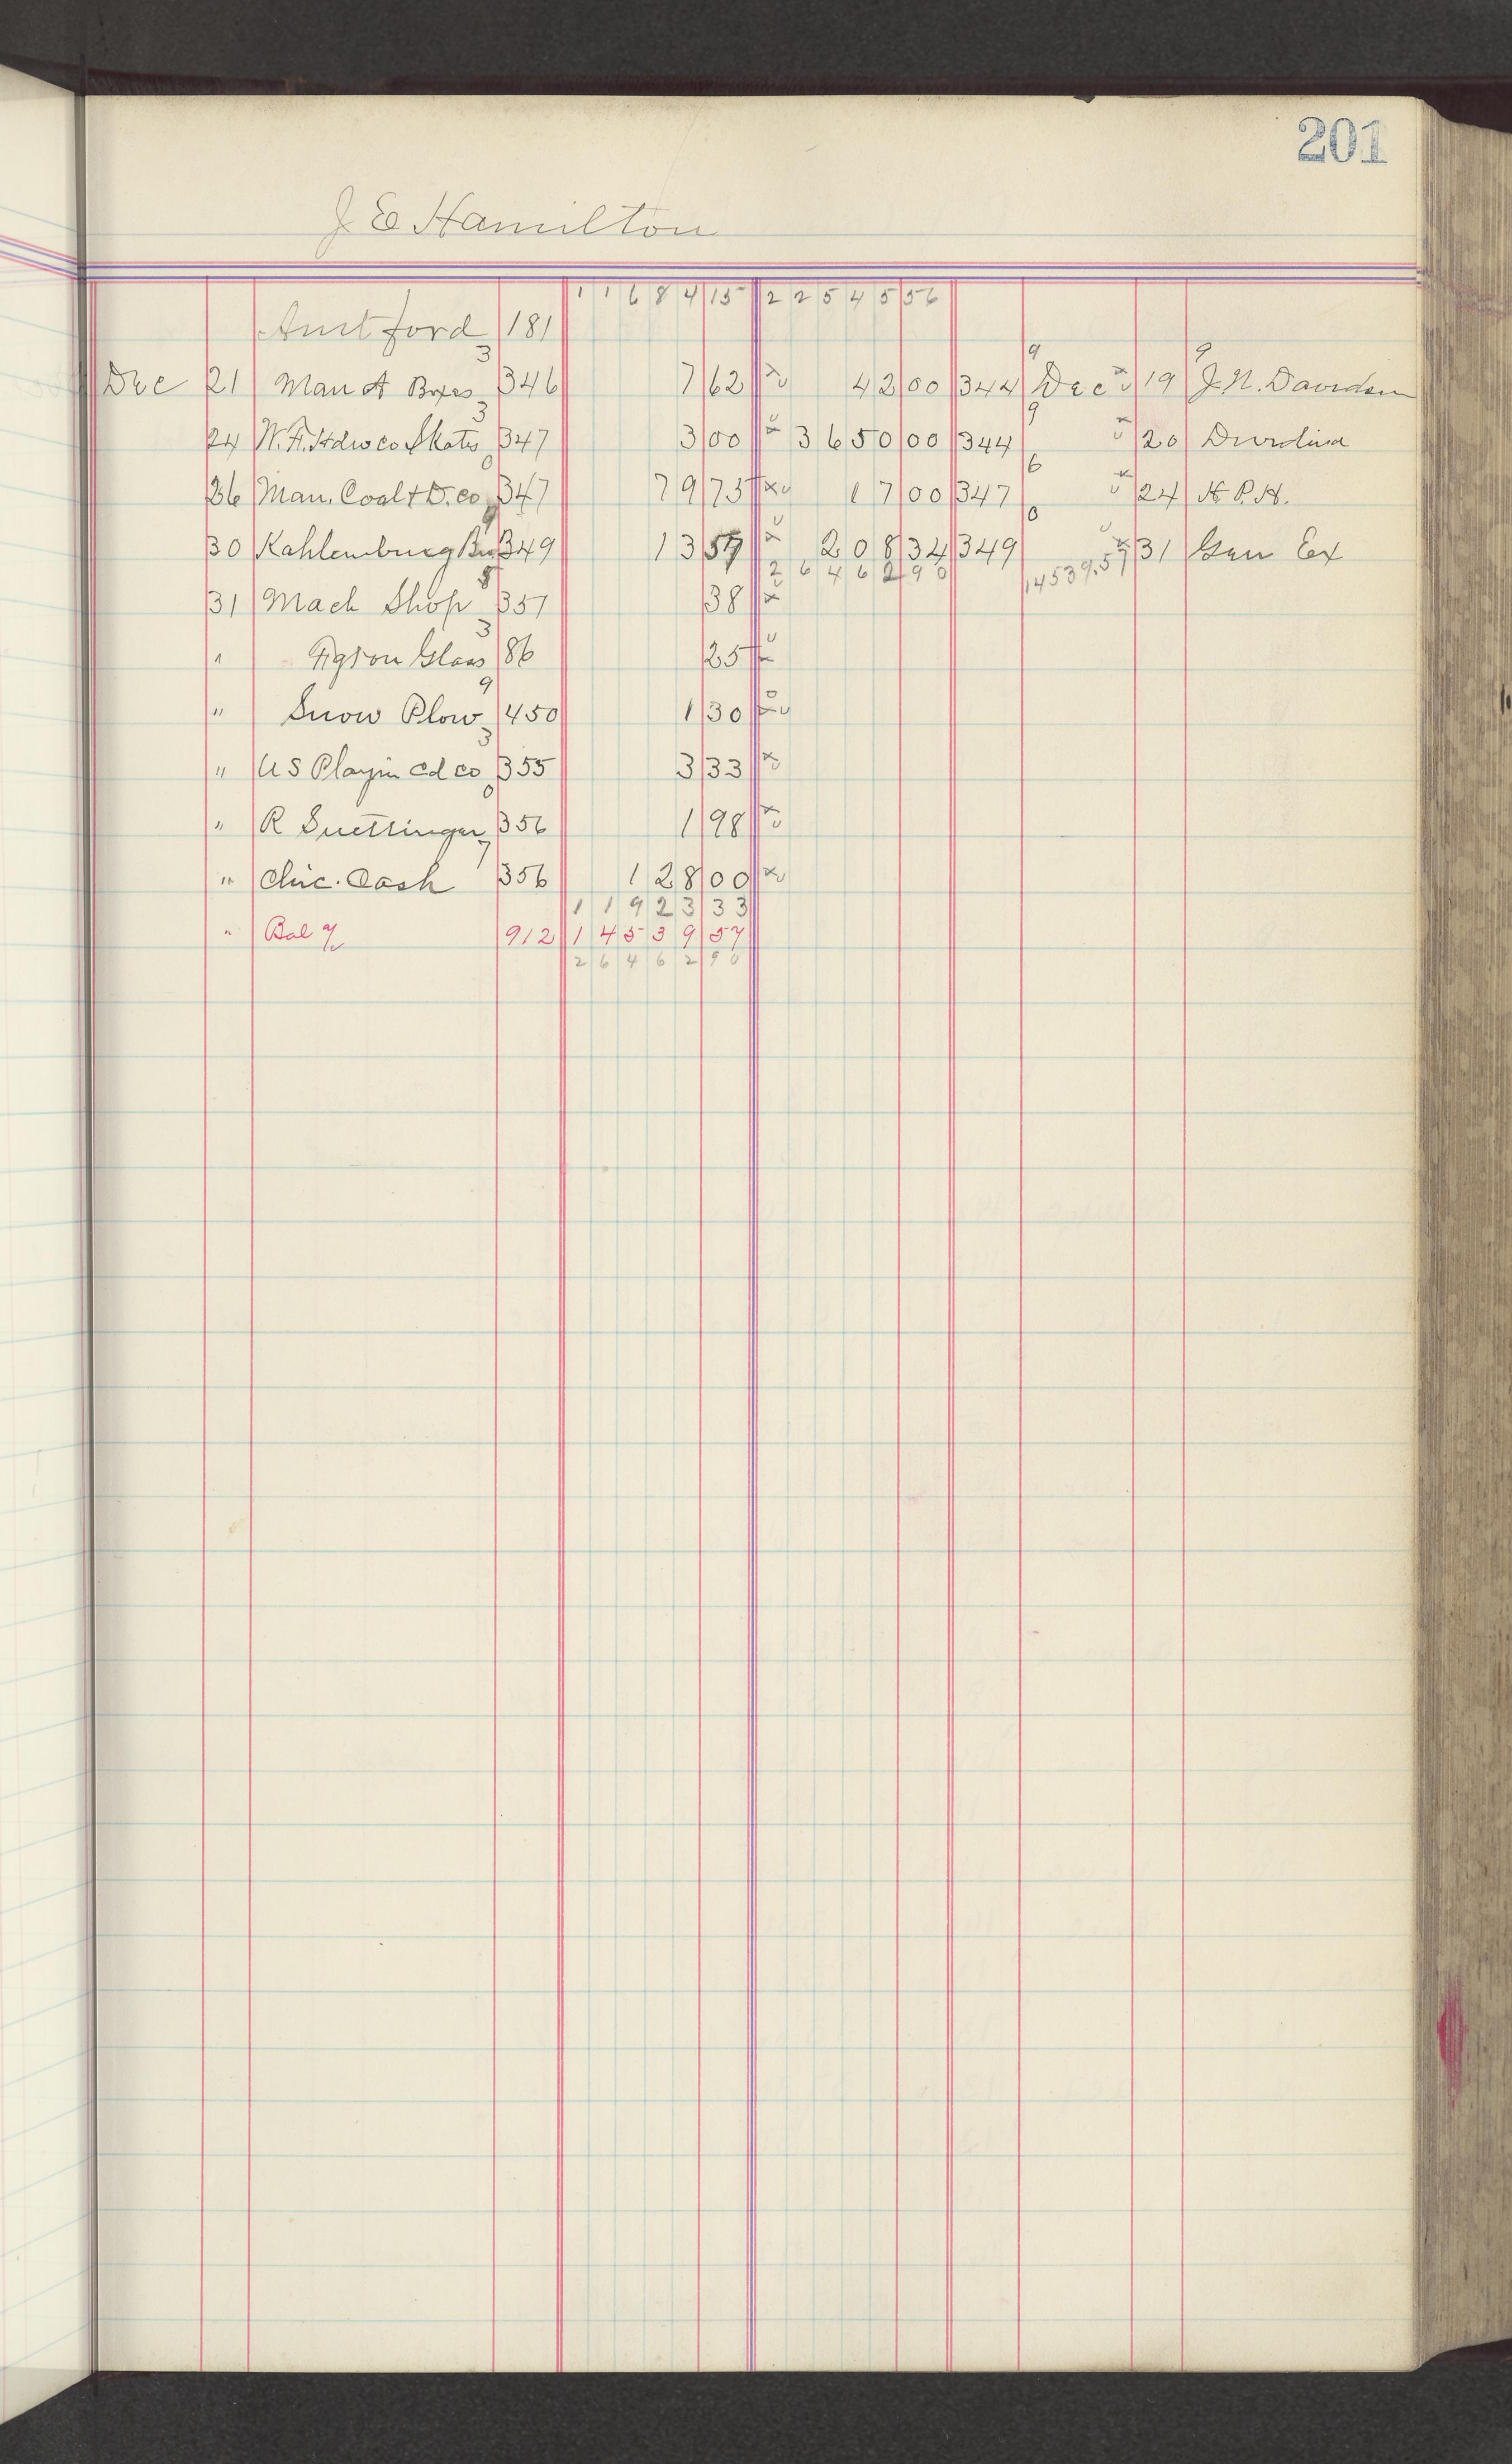 201
J E Hamilton
1 1 6 8 4 15 2 2 5 4 5 56
Amt ford 181
3 9 9
Dec 21 Man A Boxes 346 7 62 42 00 344 Dec 19 J. N. Davidson
3 9
24 W. F. Hdw co Skates 347 3 00 3 6 50 00 344 20 Dividend
0 6
26 Man. Coal & D. co 347 79 73 17 00 347 24 H. P. H.
9 0
30 Kahlenburg Bro 349 13 57 208 34 349 31 Gen Ex
2 6 4 6 2 9 0 14539.57
8
31 Mach Shop 351 38
3
" Glass 86 25
9
" Snow Plow 450 1 30
3
" U S Playin Cd co 355 3 33
0
" R Suettinger 356 1 98
7
" Chic. Cash 356 128 00
1 1 9 2 3 33
" Bal 912 1 4 5 3 9 57
2 6 4 6 2 9 0